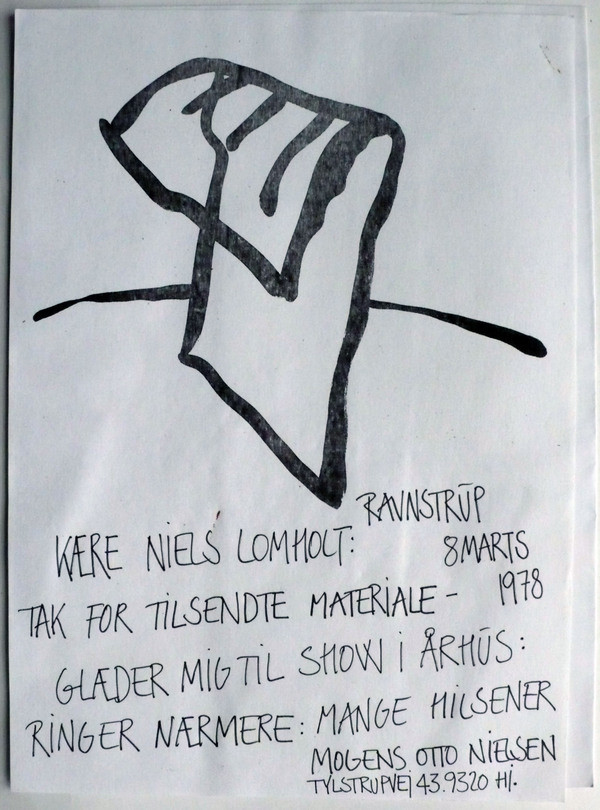 RAVNSTRŪP
KÆRE NIELS LOMHOLT:
8 MARTS
1978
TAK FOR TILSENDTE MATERIALE -
GLÆDER MIG TIL SHOW I ÅRHŪS:
RINGER NÆRMERE: MANGE HILSENER
MOGENS OTTO NIELSEN
TYLSTRUPVEJ 43. 9320 HJ.